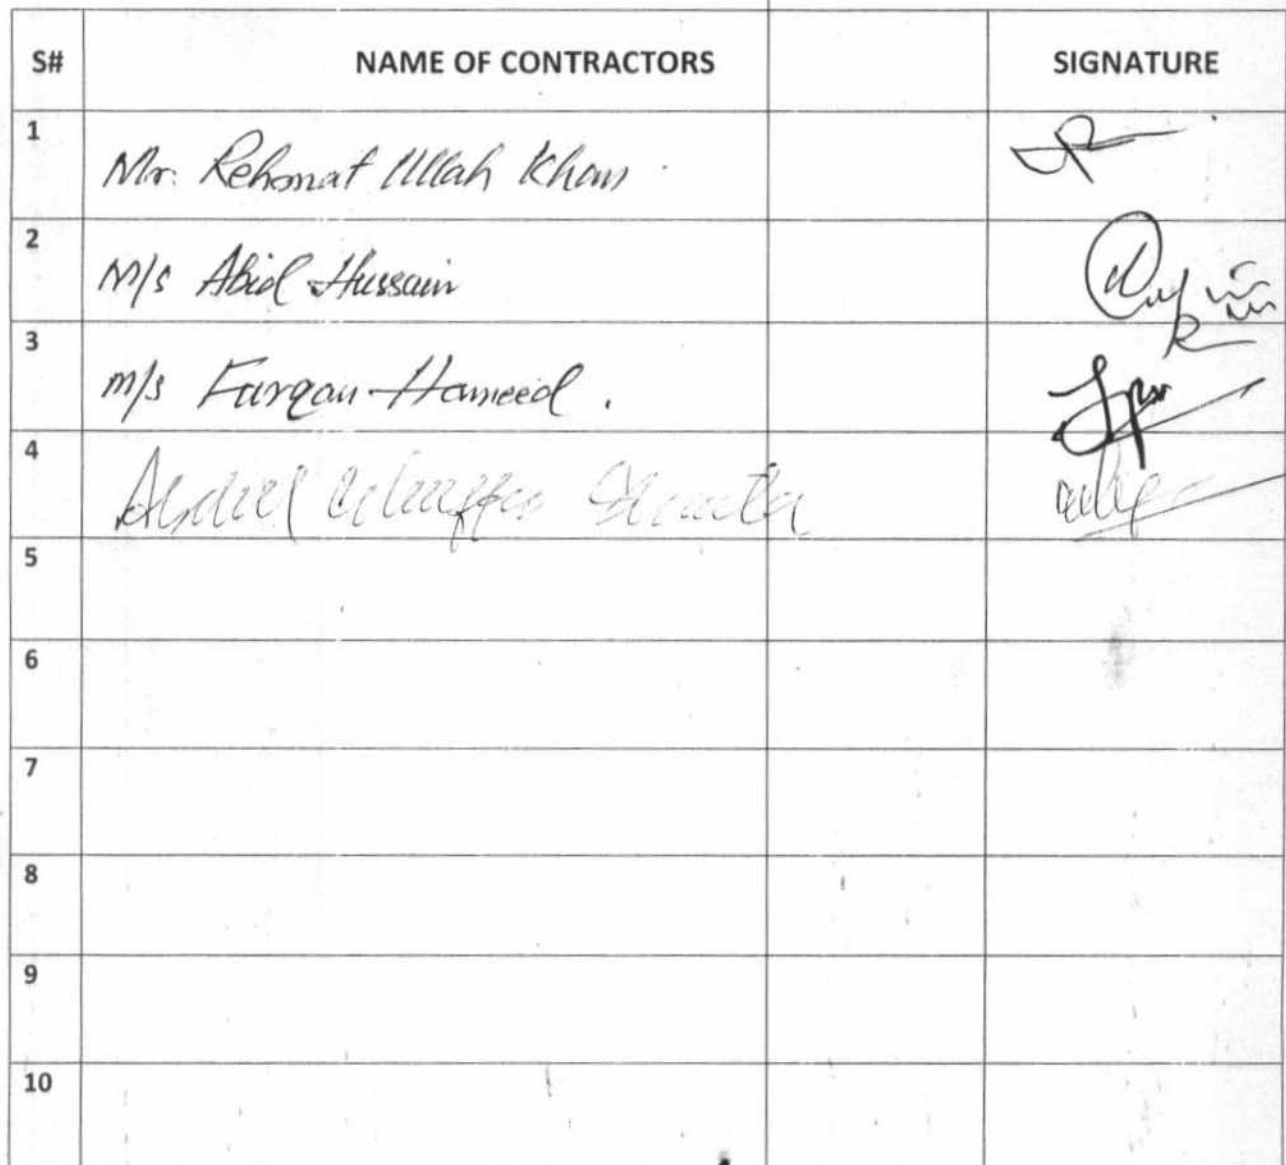 S# NAME OF CONTRACTORS SIGNATURE
1 Mr. Rehmat Ullah Khan
2 M/s Abid Hussain
3 M/s Furqan Hameed.
4 Abdul
5
6
7
8
9
10